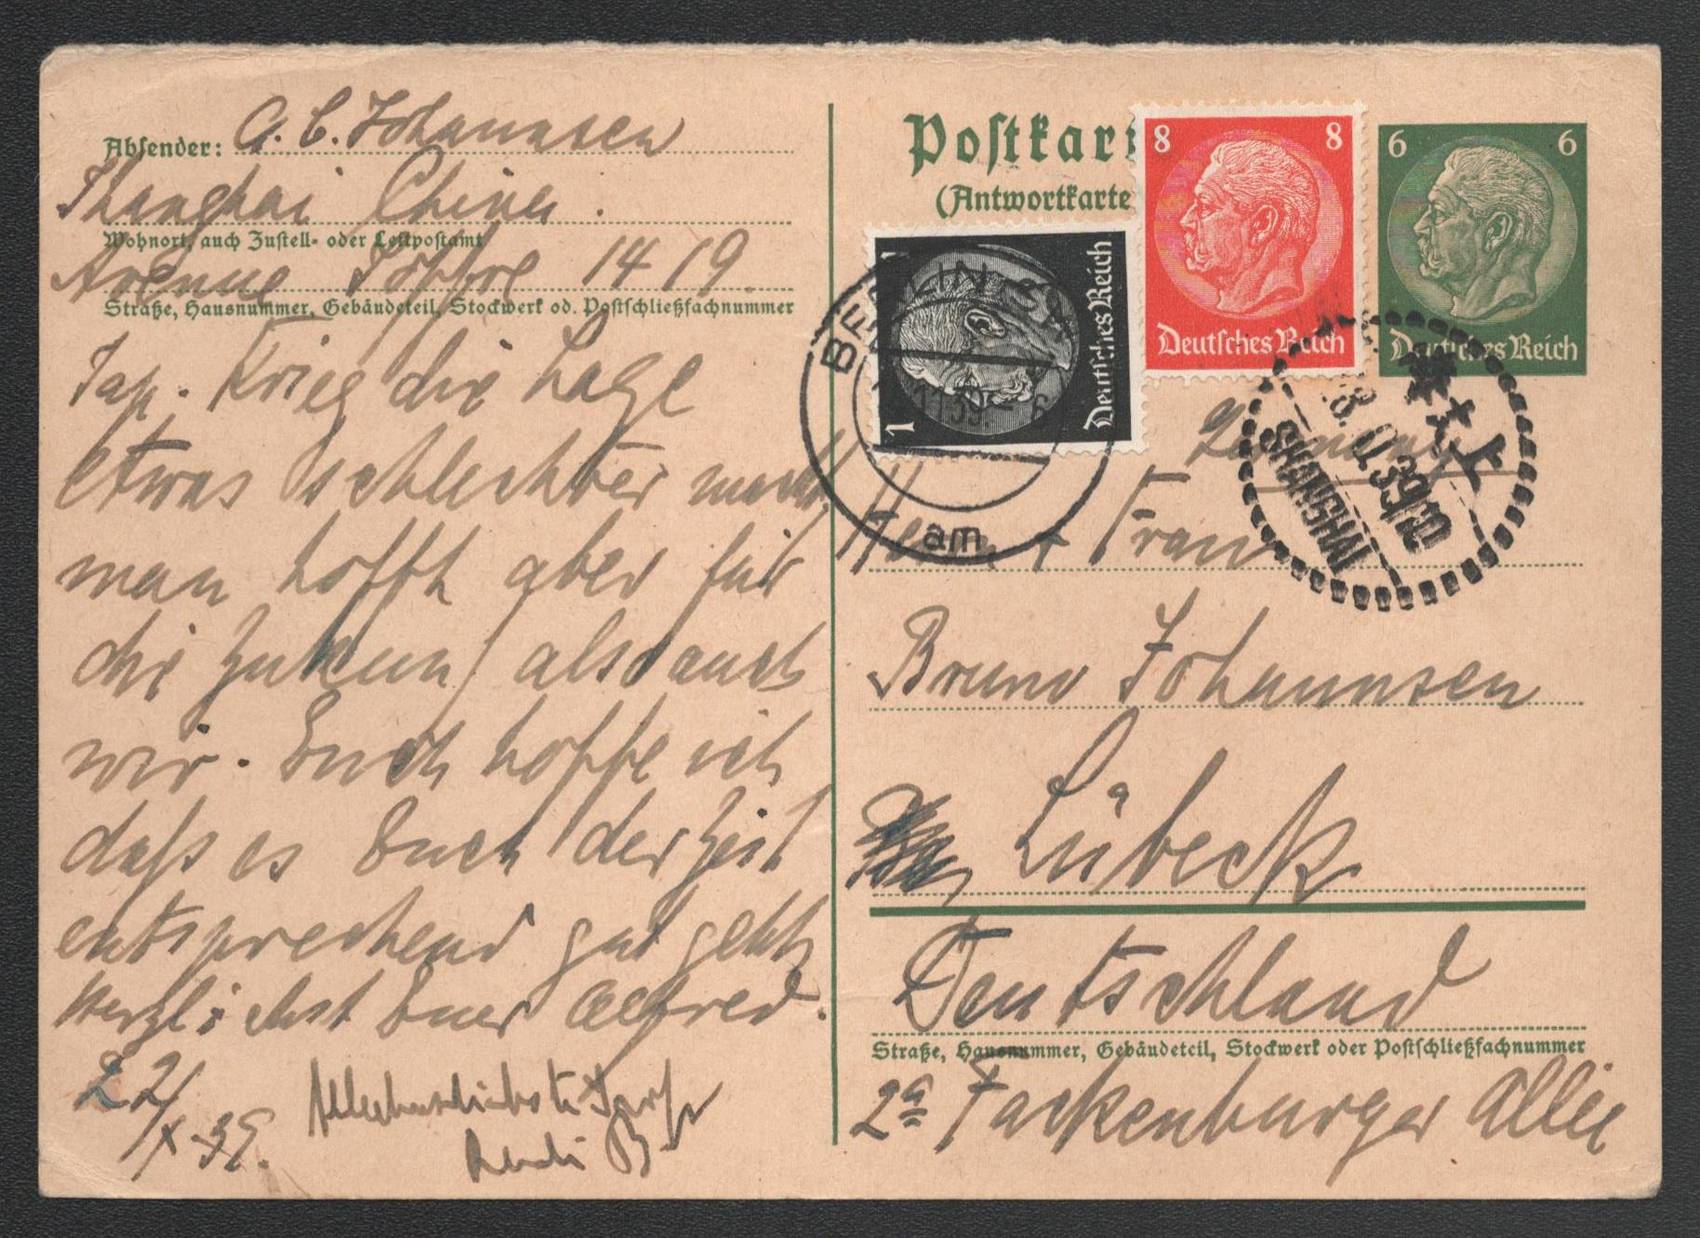 Absender: A. C. Johannsen
Shanghai China.
Wohnort, auch Zustell- oder Leitpostamt
Avenue Joffre 1419.
Straße, Hausnummer, Gebäudeteil, Stockwerk od. Postschließfachnummer
Jap. Krieg die Lage
etwas schlechter macht,
man hofft aber für
die Zukunft also auch
wir. Euch hoffe ich
daß es Euch der Zeit
entsprechend gut geht,
Herzlichst Euer Alfred.
22/X.39.
Postkar
(Antwortkarte
8 8
Deutsches Reich
6 6
Deutsches Reich
1 1
Deutsches Reich
BERLIN
1139.- 6
am
SHANGHAI
39
Herrn + Frau
Bruno Johannsen
Lübeck
Deutschland
Straße, Hausnummer, Gebäudeteil, Stockwerk oder Postschließfachnummer
2a Fackenburger Allee